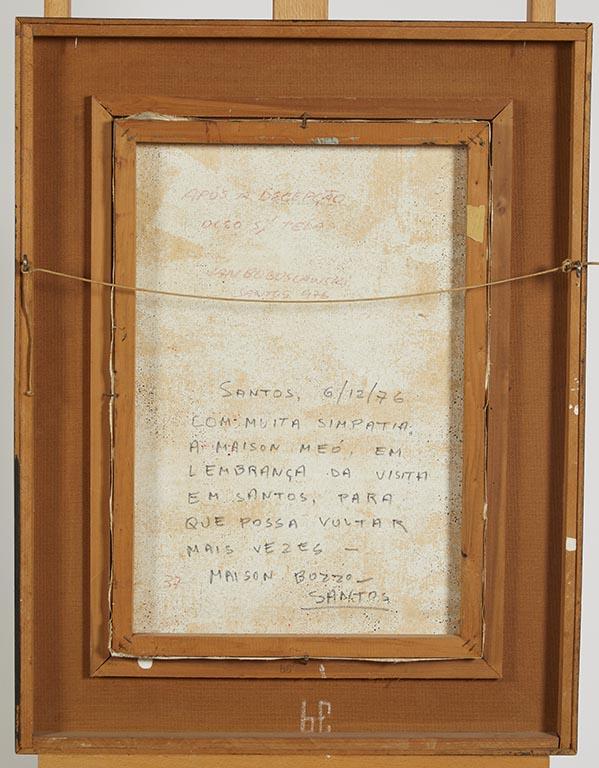 APÓS A DECEPÇÃO
OLEO S/ TELA
SANTOS 976
SANTOS, 6/12/76
COM MUITA SIMPATIA,
A MAISON MEÓ, EM
LEMBRANÇA DA VISITA
EM SANTOS, PARA
QUE POSSA VOLTAR
MAIS VEZES —
MAISON BOZZO —
SANTOS
37